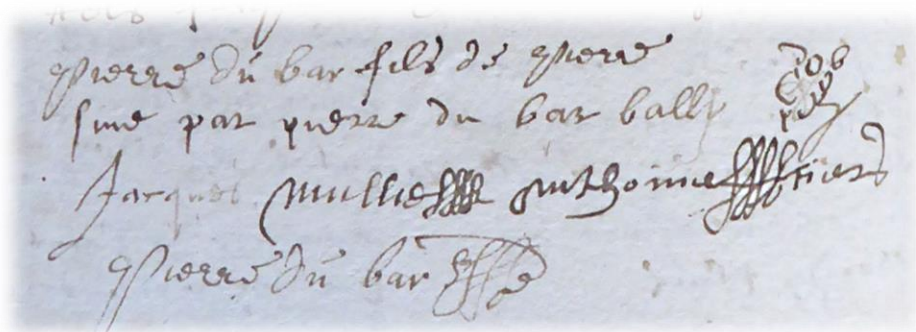 pierre du bar fils de piere
sine par pierre du bar bally
Jacques mullie Anthonne
pierre du bar